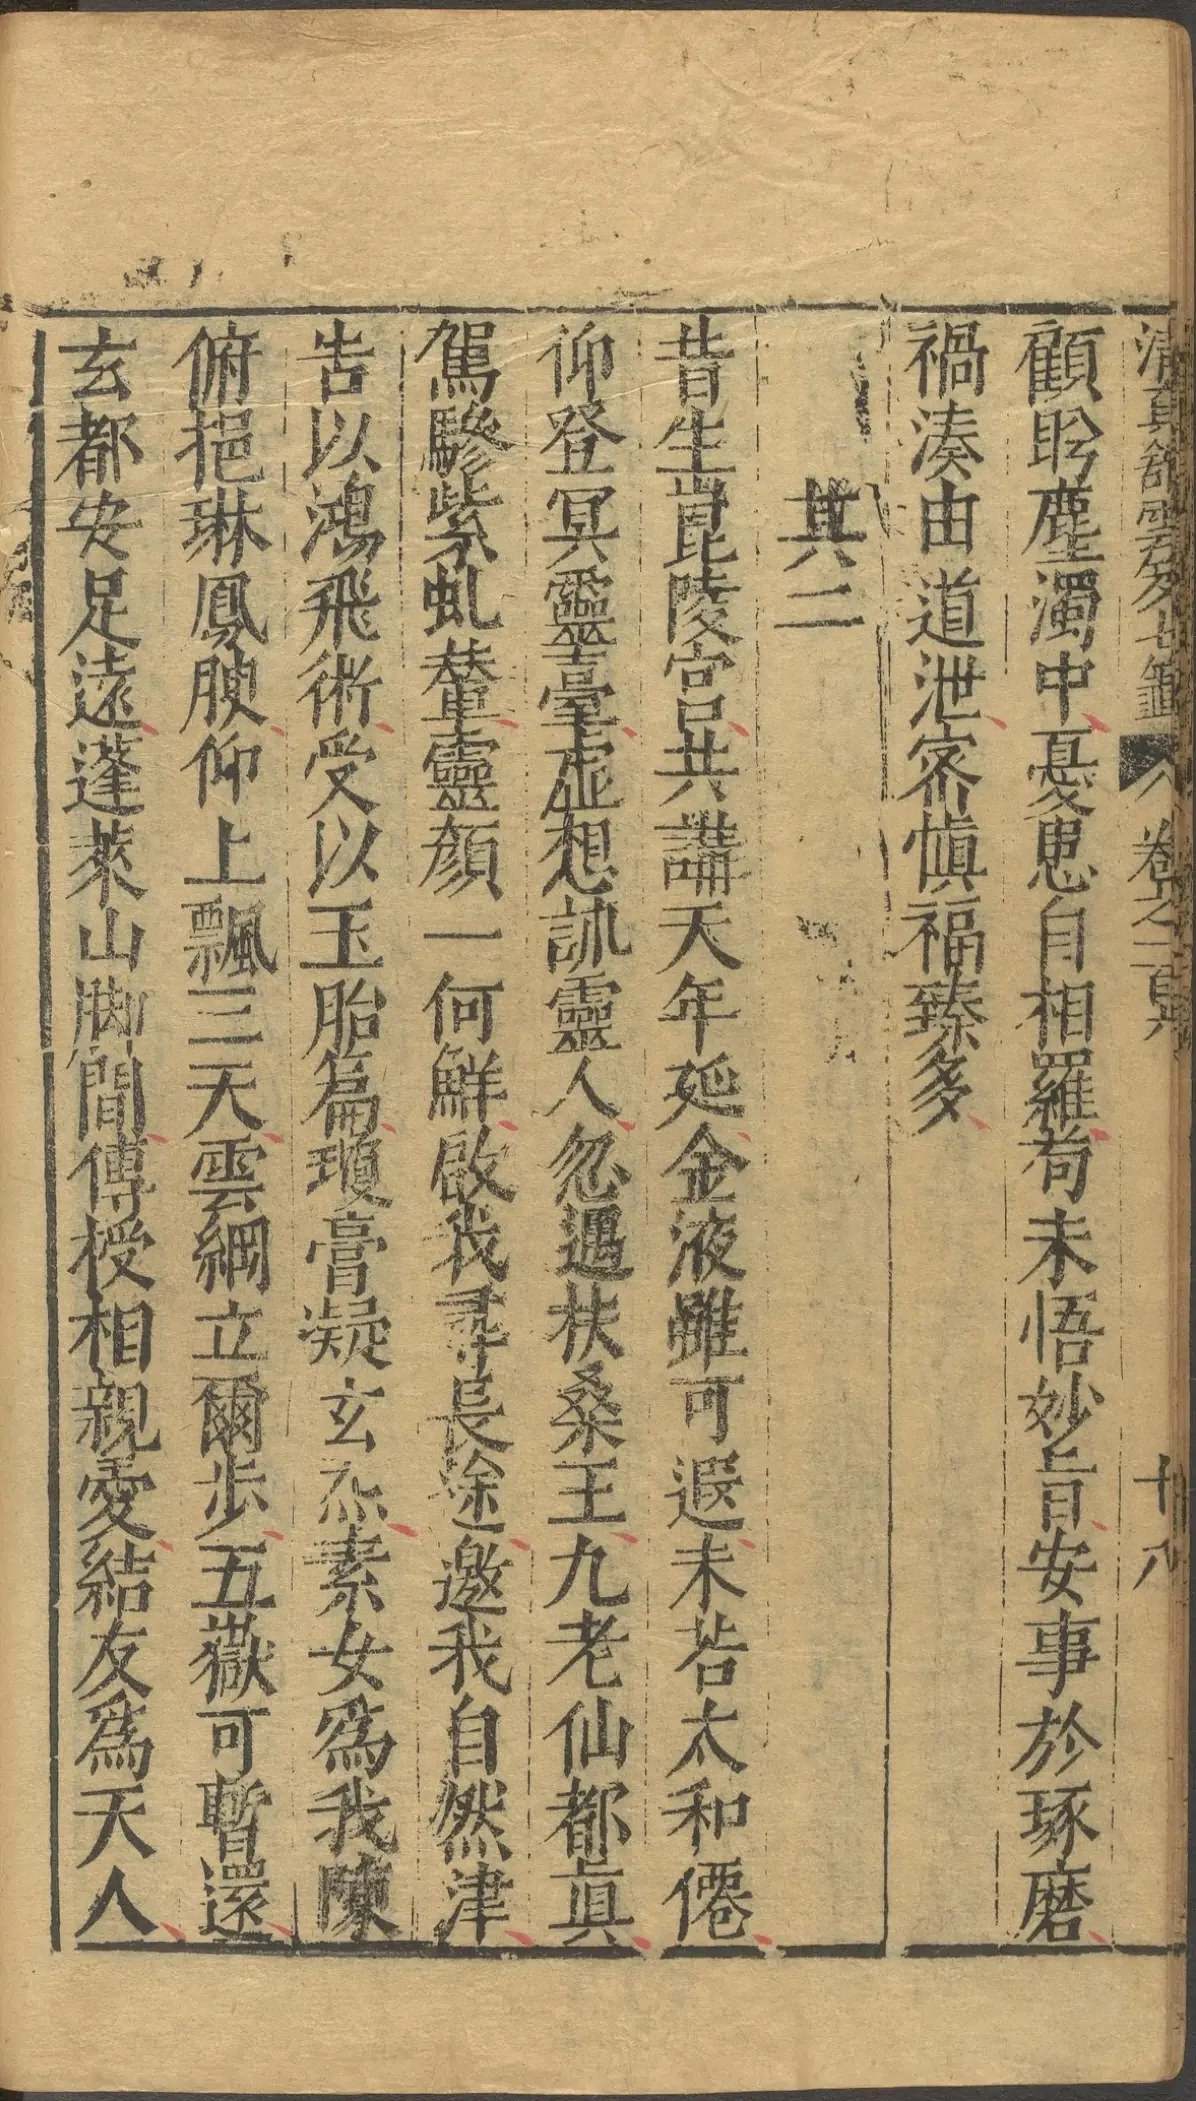 清眞館雲笈七籤 卷之二百 十八
顧眄塵濁中憂患自相羅苟未悟妙旨安事於琢磨
禍湊由道泄密慎福臻多
其二
昔生崑陵宮共講天年延金液雖可遐未若太和僊
仰登冥靈臺虛想詠靈人忽遇扶桑王九老仙都眞
駕驂紫虬輦靈顏一何鮮啟我尋長途邀我自然津
告以鴻飛術受以玉胎篇瓊膏凝玄炁素女爲我陳
俯挹琳鳳腴仰上飄三天雲綱立爾步五嶽可暫還
玄都安足遠蓬萊山脚間傳授相親愛結友爲天人